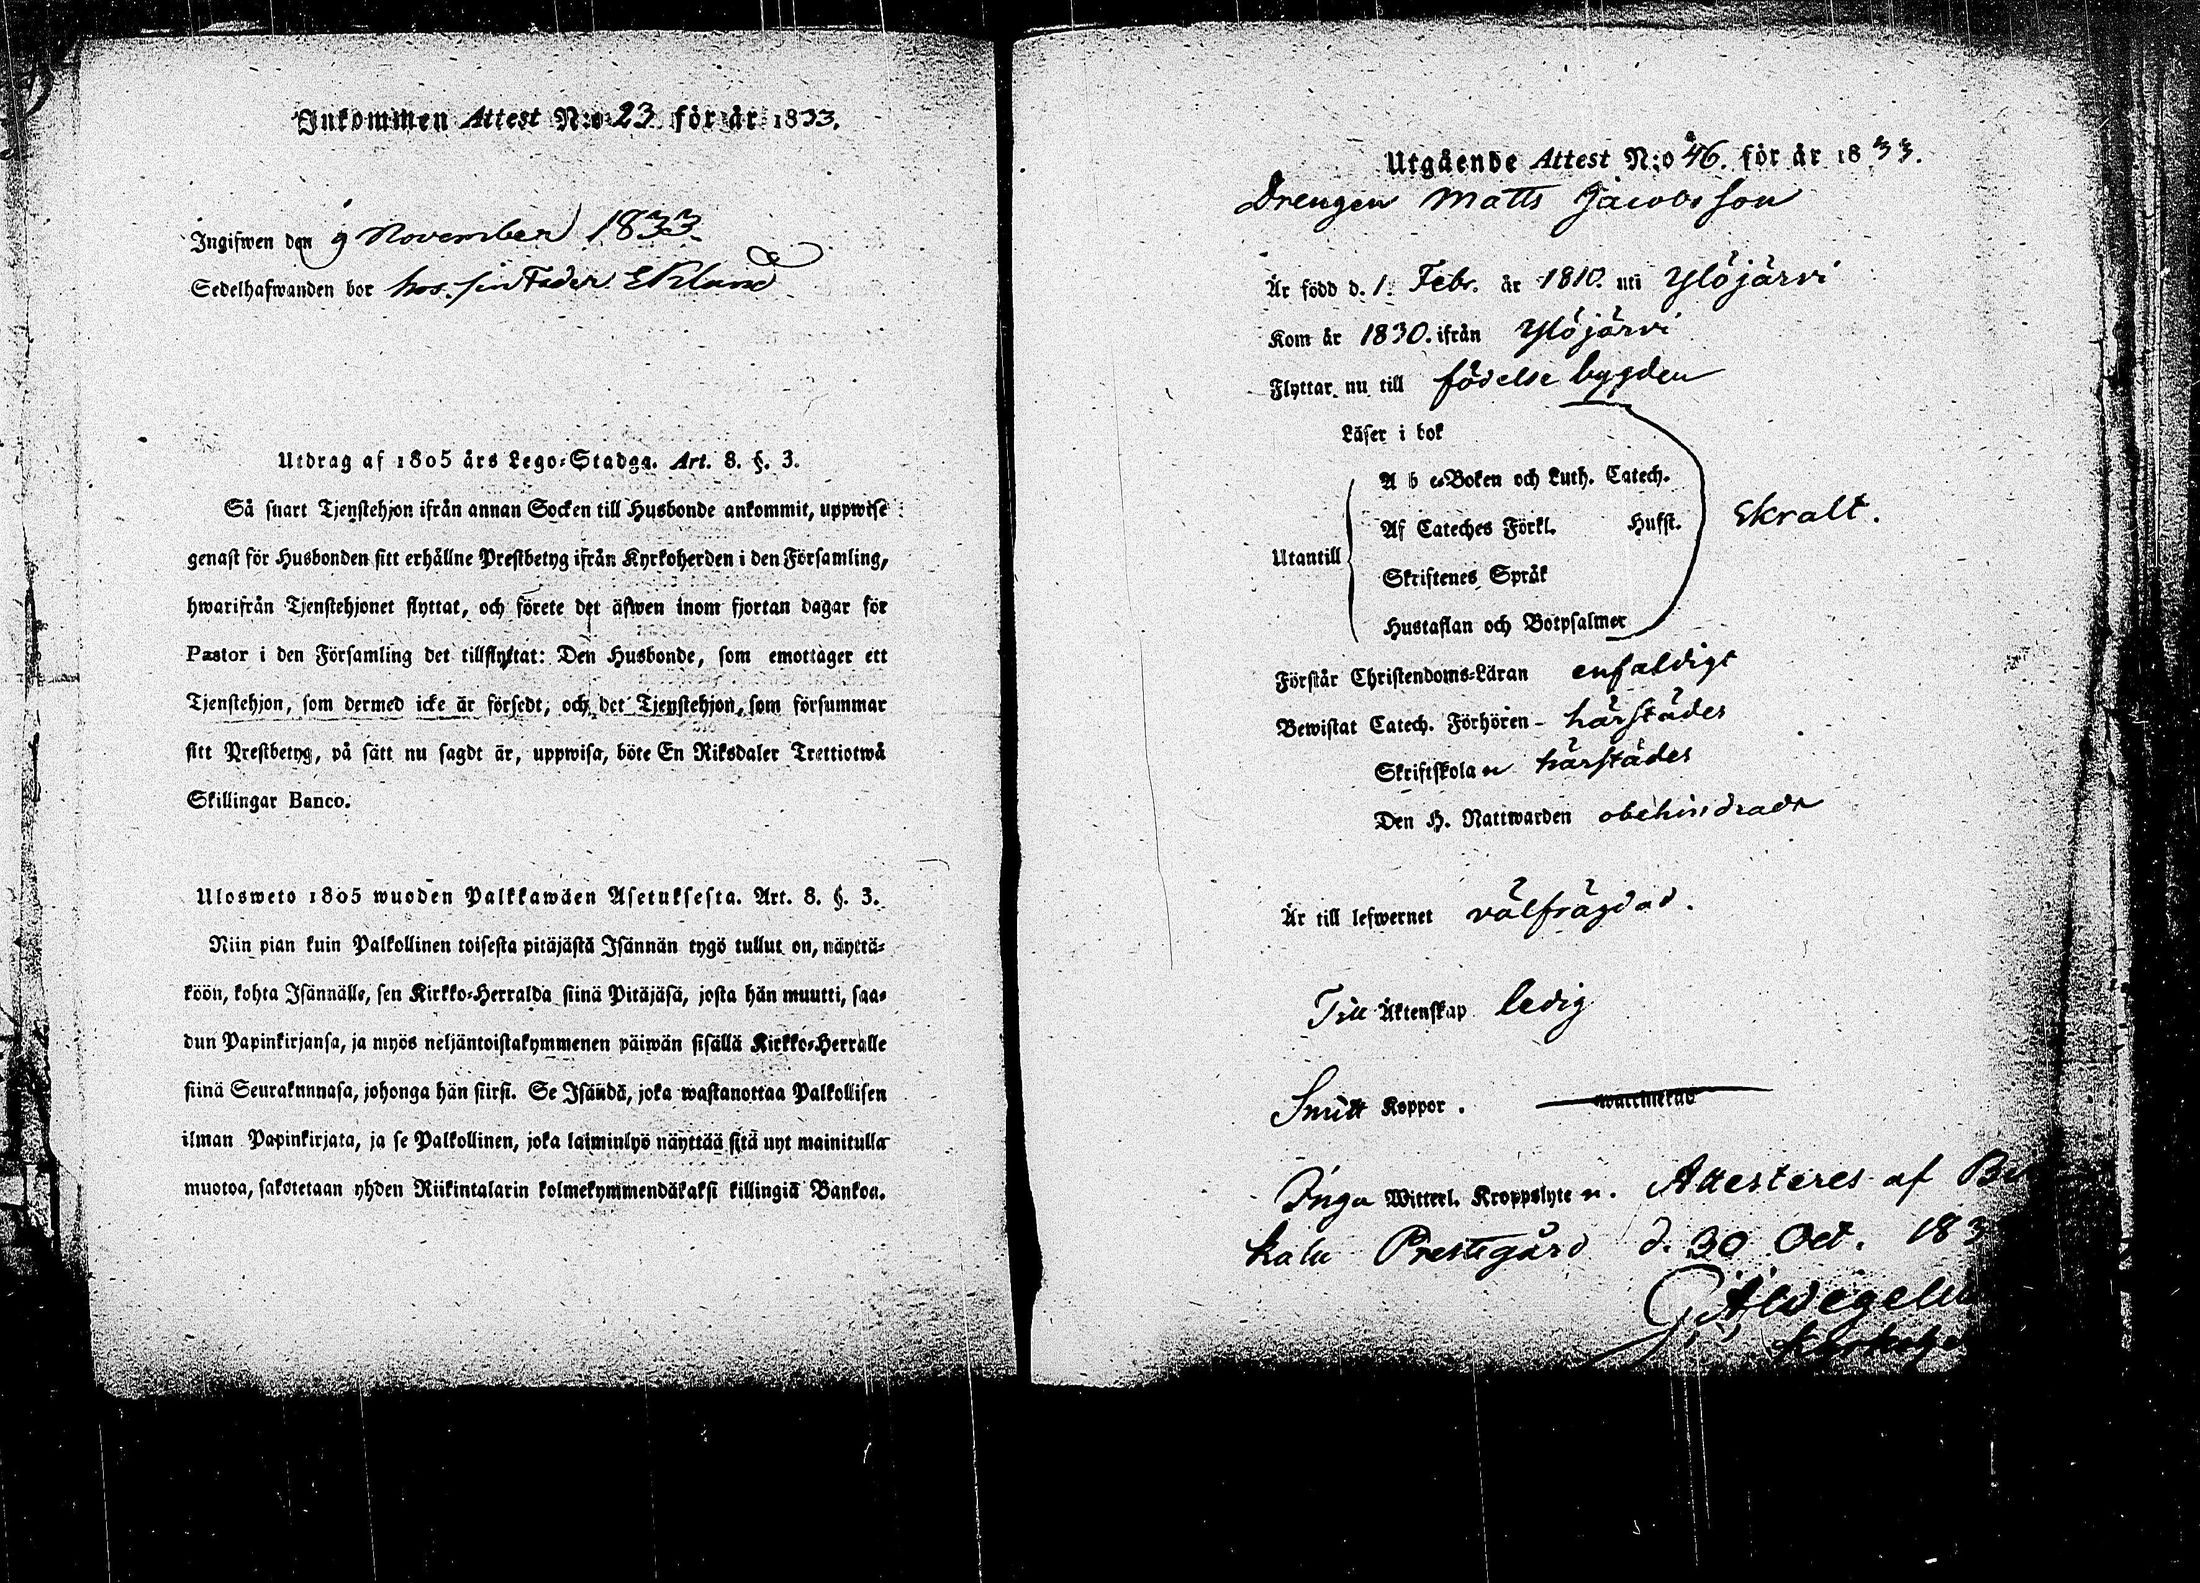 Inkommen Attest N:o 23. för år 1833.
Ingifwen den 9 November 1833.
Sedelhafwanden bor hos sin Fader Eklund
Utdrag af 1805 års Lego-Stadga. Art. 8. §. 3.
Så snart Tjenstehjon ifrån annan Socken till Husbonde ankommit, uppwise
genast för Husbonden sitt erhållne Prestbetyg ifrån Kyrkoherden i den Församling,
hwarifrån Tjenstehjonet flyttat, och förete det äfwen inom fjortan dagar för
Pastor i den Församling det tillflyttat: Den Husbonde, som emottager ett
Tjenstehjon, som dermed icke är försedt, och det Tjenstehjon, som försummar
sitt Prestbetyg, på sätt nu sagdt är, uppwisa, böte En Riksdaler Trettiotwå
Skillingar Banco.
Ulosweto 1805 wuoden Palkkawäen Asetuksesta. Art. 8. §. 3.
Niin pian kuin Palkollinen toisesta pitäjästä Isännän tygö tullut on, näyttä-
köön, kohta Isännälle, sen Kirkko-Herralda siinä Pitäjäsä, josta hän muutti, saa-
dun Papinkirjansa, ja myös neljäntoistakymmenen päiwän sisällä Kirkko-Herralle
siinä Seurakunnasa, johonga hän siirsi. Se Isändä, joka wastanottaa Palkollisen
ilman Papinkirjata, ja se Palkollinen, joka laiminlyö näyttää sitä nyt mainitulla
muotoa, sakotetaan yhden Riikintalarin kolmekymmendäkaksi killingiä Bankoa.
Utgående Attest N:o 46. för år 1833.
Drengen Matts Jacobsson
Är född d. 1. Febr. år 1810. uti Ylöjärvi
Kom år 1830. ifrån Ylöjärvi
Flyttar nu till födelse bygden
Läser i bok
A b c-Boken och Luth. Catech.
Af Cateches Förkl. Hufst. Skralt.
Utantill
Skriftenes Språk
Hustaflan och Botpsalmer
Förstår Christendoms-Läran enfaldigt
Bewistat Catech. Förhören - härstädes
Skriftskolan härstädes
Den H. Nattwarden obehindradt
Är till lefwernet välfrägdad.
Till Äktenskap ledig
Smitt Koppor.
Inga Witterl. Kroppslyten. Attesteres af
kala Prestegård d. 30 Oct. 183